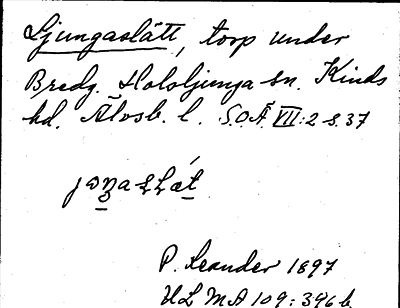 Ljungaslätt, torp under
Bredg. Hololjunga sn. Kinds
hd. Älvsb. l. S.O.Ä. VII:2 s. 37
P. Leander 1897
ULMA 109:396 b